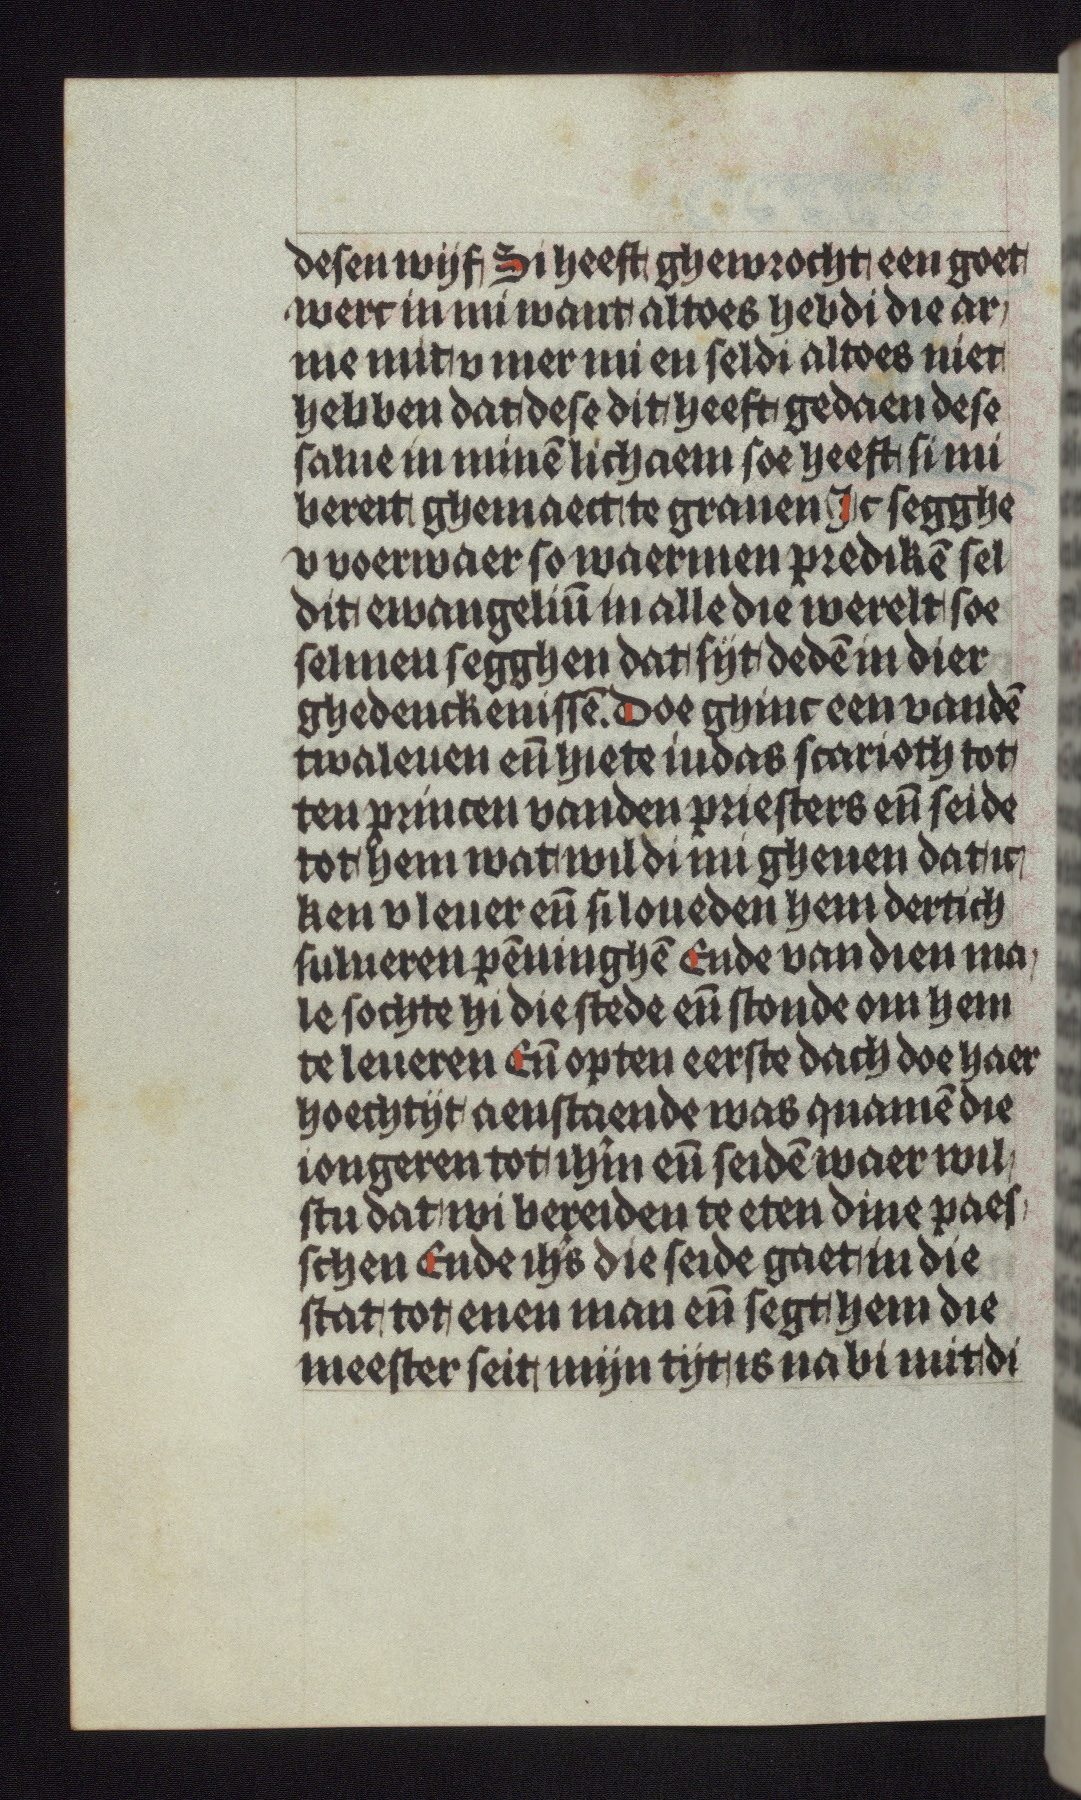 desen wijf Si heeft ghewrocht een goet
werc in mi want altoes hebdi die ar
me mit v mer mi en seldi altoes niet
hebben dat dese dit heeft gedaen dese
salue in minē lichaem soe heeft si mi
bereit ghemaect te grauen Ic segghe
v voerwaer so waermen predikē sel
dit ewangeliū in alle die werelt soe
selmen segghen dat sijt dedē in dier
ghedenckenissē. Doe ghinc een vandē
twaleuen eñ hiete iudas scarioth tot
ten princen vanden priesters eñ seide
tot hem wat wildi mi gheuen dat ic
ken v leuer eñ si loueden hem dertich
sulueren pēninghē Ende van dien ma
le sochte hi die stede eñ stonde om hem
te leueren Eñ opten eerste dach doe haer
hoechtijt aenstaende was quamē die
iongeren tot ihm̄ eñ seidē waer wil
stu dat wi bereiden te eten dine paes
schen Ende ihs̄ die seide gaet in die
stat tot enen man eñ segt hem die
meester seit mijn tijt is na bi mit di